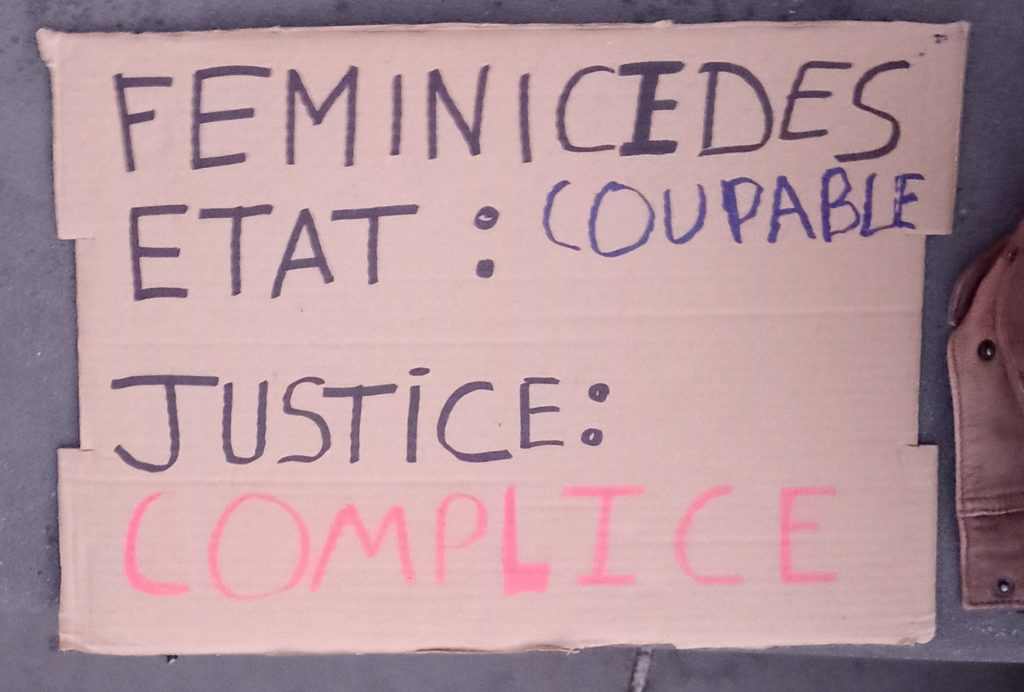 FEMINICIDES
ETAT : COUPABLE
JUSTiCE:
COMPLICE